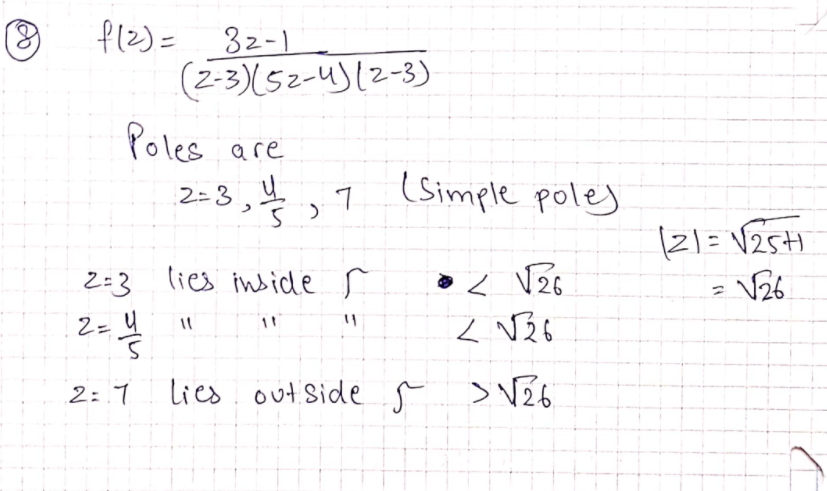 ⑧ f(z) = 3z-1
(z-3)(5z-4)(z-3)
Poles are
z=3, 4/5, 7 (Simple poles)
|z| = √25+1
= √26
z=3 lies inside Γ < √26
z=4/5 " " " < √26
z=7 lies outside Γ > √26